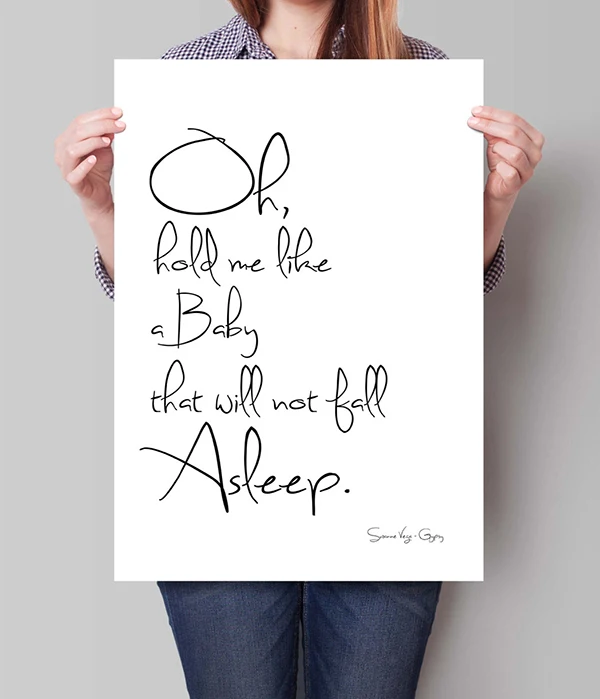 Oh,
hold me like
a Baby
that will not fall
Asleep.
Suzanne Vega - Gypsy